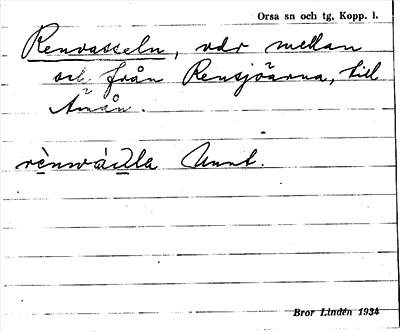 Orsa sn och tg, Kopp. l.
Renvasseln, vdr mellan
och från Rensjöarna, till
Ämån.
Bror Lindén 1934